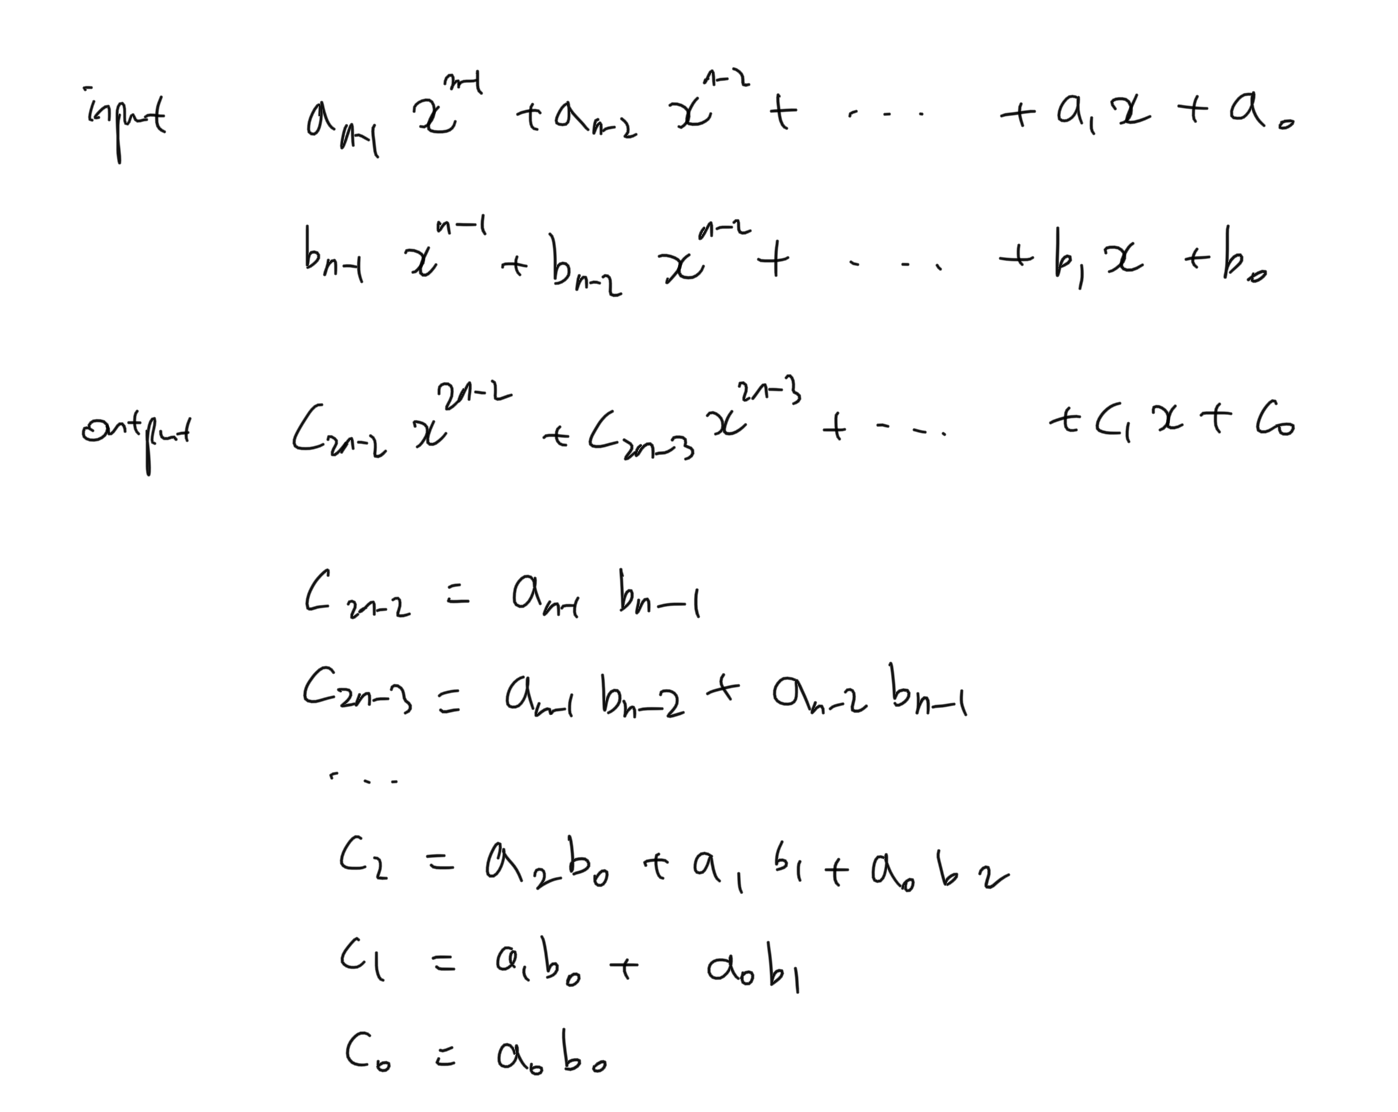 input a_{n-1} x^{n-1} + a_{n-2} x^{n-2} + ... + a_1 x + a_0
b_{n-1} x^{n-1} + b_{n-2} x^{n-2} + ... + b_1 x + b_0
output C_{2n-2} x^{2n-2} + C_{2n-3} x^{2n-3} + ... + C_1 x + C_0
C_{2n-2} = a_{n-1} b_{n-1}
C_{2n-3} = a_{n-1} b_{n-2} + a_{n-2} b_{n-1}
...
C_2 = a_2 b_0 + a_1 b_1 + a_0 b_2
C_1 = a_1 b_0 + a_0 b_1
C_0 = a_0 b_0